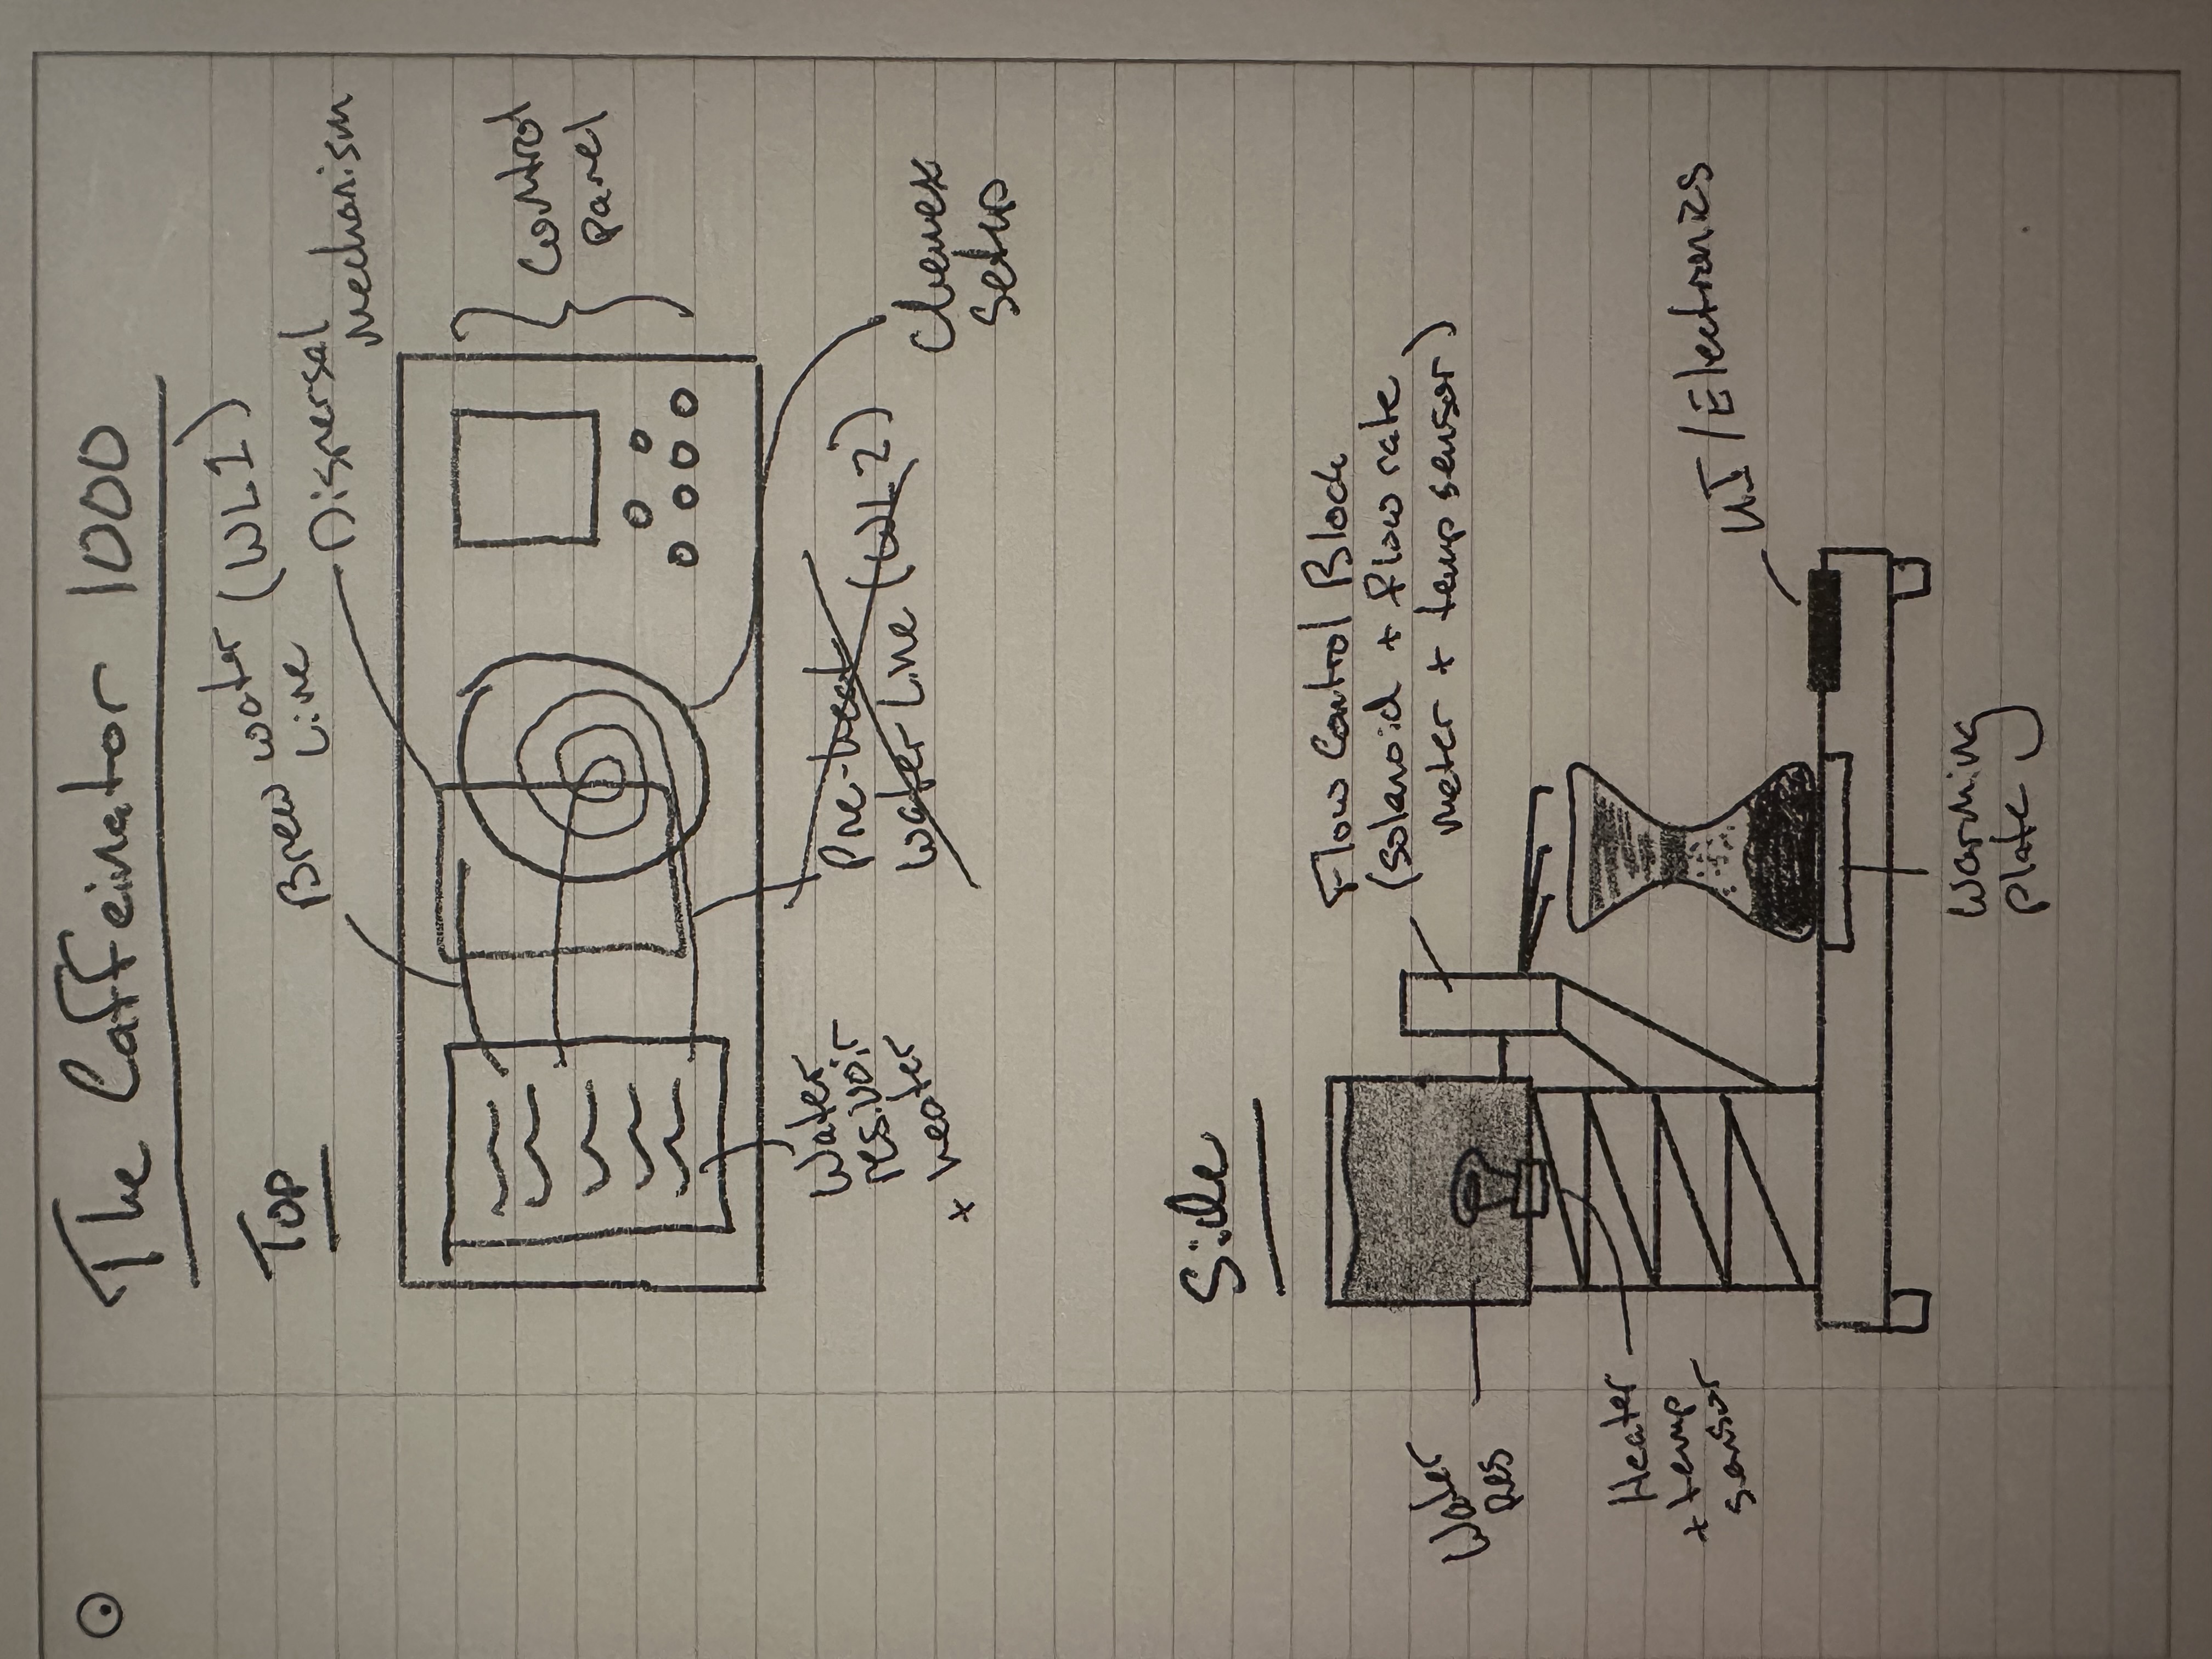 The Caffeinator 1000
Top
Brew water
Line (WL1)
Dispersal
Mechanism
Control
Panel
Water
resivoir
+ heater
Pre-heat
Water Line (WL2)
Chemex
Setup
Side
Flow Control Block
(solanoid + flow rate
meter + temp sensor)
Water
Res
Heater
+ temp
sensor
UI/Electronics
Warming
plate